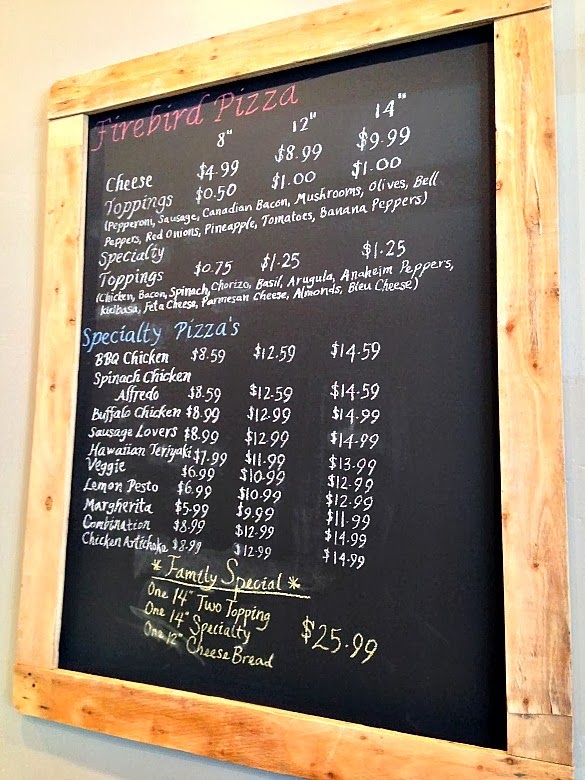 Firebird Pizza
8" 12" 14"
Cheese $4.99 $8.99 $9.99
Toppings $0.50 $1.00 $1.00
(Pepperoni, Sausage, Canadian Bacon, Mushrooms, Olives, Bell
Peppers, Red Onions, Pineapple, Tomatoes, Banana Peppers)
Specialty
Toppings $0.75 $1.25 $1.25
(Chicken, Bacon, Spinach, Chorizo, Basil, Arugula, Anaheim Peppers,
Kielbasa, Feta Cheese, Parmesan Cheese, Almonds, Bleu Cheese)
Specialty Pizza's
BBQ Chicken $8.59 $12.59 $14.59
Spinach Chicken
Alfredo $8.59 $12.59 $14.59
Buffalo Chicken $8.99 $12.99 $14.99
Sausage Lovers $8.99 $12.99 $14.99
Hawaiian Teriyaki $7.99 $11.99 $13.99
Veggie $6.99 $10.99 $12.99
Lemon Pesto $6.99 $10.99 $12.99
Margherita $5.99 $9.99 $11.99
Combination $8.99 $12.99 $14.99
Chicken Artichoke $8.99 $12.99 $14.99
* Family Special *
One 14" Two Topping
One 14" Specialty $25.99
One 12" Cheese Bread